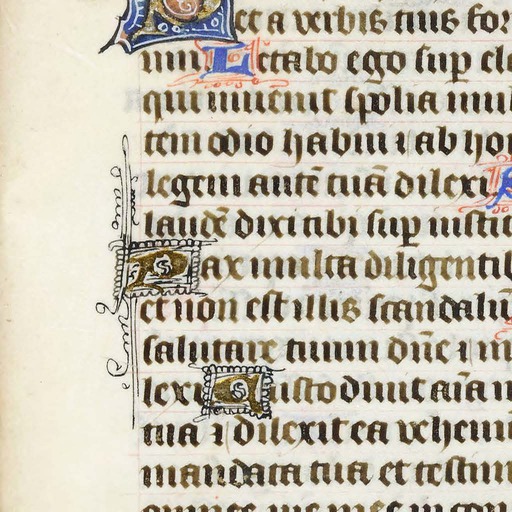 et a verbis tuis for
mi Letabo ego sup̄ elo
qui invenit spolia mul
tem odio habui ⁊ ab ho
legem autē tuā dilexi S
laudē dixi tibi sup̄ iustic
Pax multa diligentib
et non est illis scandalū
salutare tuum dn̄e ⁊ m
lexi Custodivit aīa m
tua ⁊ dilexit ea vehem
mandata tua et testim
omnes vie mee in con